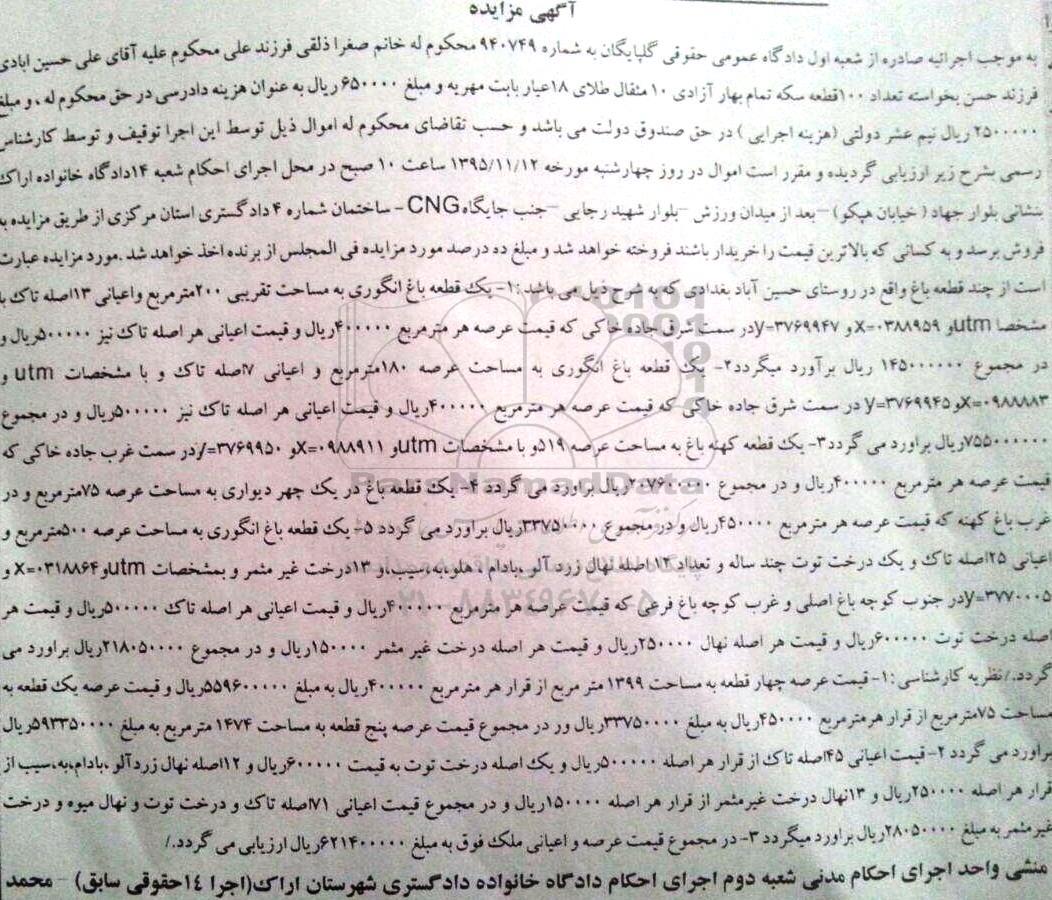 آگهی مزایده
به موجب اجرائیه صادره از شعبه اول دادگاه عمومی حقوقی گلپایگان به شماره ۹۴۰۷۴۹ محکوم له خانم صغرا ذلقی فرزند علی محکوم علیه آقای علی حسین ابادی
فرزند حسن بخواسته تعداد ۱۰۰قطعه سکه تمام بهار آزادی ۱۰ مثقال طلای ۱۸عیار بابت مهریه و مبلغ ۶۵۰۰۰۰ ریال به عنوان هزینه دادرسی در حق محکوم له ، و مبلغ
۲۵۰۰۰۰۰ ریال نیم عشر دولتی (هزینه اجرایی ) در حق صندوق دولت می باشد و حسب تقاضای محکوم له اموال ذیل توسط این اجرا توقیف و توسط کارشناس
رسمی بشرح زیر ارزیابی گردیده و مقرر است اموال در روز چهارشنبه مورخه ۱۳۹۵/۱۱/۱۲ ساعت ۱۰ صبح در محل اجرای احکام شعبه ۱۴دادگاه خانواده اراک
بنشانی بلوار جهاد ( خیابان هپکو) –بعد از میدان ورزش –بلوار شهید رجایی –جنب جایگاه CNG – ساختمان شماره ۴ دادگستری استان مرکزی از طریق مزایده به
فروش برسد و به کسانی که بالاترین قیمت را خریدار باشند فروخته خواهد شد و مبلغ ده درصد مورد مزایده فی المجلس از برنده اخذ خواهد شد .مورد مزایده عبارت
است از چند قطعه باغ واقع در روستای حسین آباد بغدادی که به شرح ذیل می باشد :۱- یک قطعه باغ انگوری به مساحت تقریبی ۲۰۰مترمربع واعیانی ۱۳اصله تاک با
مشخصا utmو X=۰۳۸۸۹۵۹ و y=۳۷۶۹۹۴۷در سمت شرق جاده خاکی که قیمت عرصه هر مترمربع ۴۰۰۰۰۰ریال و قیمت اعیانی هر اصله تاک نیز ۵۰۰۰۰۰ریال و
در مجموع ۱۴۵۰۰۰۰۰۰ ریال برآورد میگردد۲- یک قطعه باغ انگوری به مساحت عرصه ۱۸۰مترمربع و اعیانی ۷اصله تاک و با مشخصات utm و
X=۰۹۸۸۸۸۳و y=۳۷۶۹۹۴۵ در سمت شرق جاده خاکی که قیمت عرصه هر مترمربع ۴۰۰۰۰۰ریال و قیمت اعیانی هر اصله تاک نیز ۵۰۰۰۰۰ریال و در مجموع
۷۵۵۰۰۰۰۰۰ریال براورد می گردد۳- یک قطعه کهنه باغ به مساحت عرصه ۵۱۹و با مشخصات utmو X=۰۹۸۸۹۱۱و y=۳۷۶۹۹۵۰در سمت غرب جاده خاکی که
قیمت عرصه هر مترمربع ۴۰۰۰۰۰ریال و در مجموع ۲۰۷۶۰۰۰۰۰ریال براورد می گردد ۴- یک قطعه باغ در یک چهر دیواری به مساحت عرصه ۷۵مترمربع و در
غرب باغ کهنه که قیمت عرصه هر مترمربع ۴۵۰۰۰۰ریال و در مجموع ۳۳۷۵۰۰۰۰ریال براورد می گردد ۵- یک قطعه باغ انگوری به مساحت عرصه ۵۰۰مترمربع و
اعیانی ۲۵اصله تاک و یک درخت توت چند ساله و تعداد ۱۲اصله نهال زرد آلو ،بادام ، هلو،به،سیب،و ۱۳درخت غیر مثمر و بمشخصات utmو X=۰۳۱۸۸۶۴ و
y=۳۷۷۰۰۰۵در جنوب کوچه باغ اصلی و غرب کوچه باغ فرعی که قیمت عرصه هر مترمربع ۴۰۰۰۰۰ریال و قیمت اعیانی هر اصله تاک ۵۰۰۰۰۰ریال و قیمت هر
اصله درخت توت ۶۰۰۰۰۰ریال و قیمت هر اصله نهال ۲۵۰۰۰۰ریال و قیمت هر اصله درخت غیر مثمر ۱۵۰۰۰۰ریال و در مجموع ۲۱۸۰۵۰۰۰۰ریال براورد می
گردد./نظریه کارشناسی :۱- قیمت عرصه چهار قطعه به مساحت ۱۳۹۹ متر مربع از قرار هر مترمربع ۴۰۰۰۰۰ریال به مبلغ ۵۵۹۶۰۰۰۰۰ریال و قیمت عرصه یک قطعه به
مساحت ۷۵مترمربع از قرار هرمترمربع ۴۵۰۰۰۰ریال به مبلغ ۳۳۷۵۰۰۰۰ریال ور در مجموع قیمت عرصه پنج قطعه به مساحت ۱۴۷۴ مترمربع به مبلغ ۵۹۳۳۵۰۰۰۰ریال
براورد می گردد ۲- قیمت اعیانی ۴۵اصله تاک از قرار هر اصله ۵۰۰۰۰۰ریال و یک اصله درخت توت به قیمت ۶۰۰۰۰۰ریال و ۱۲اصله نهال زردآلو ،بادام،به،سیب از
قرار هر اصله ۲۵۰۰۰۰ریال و ۱۳نهال درخت غیرمثمر از قرار هر اصله ۱۵۰۰۰۰ریال و در مجموع قیمت اعیانی ۷۱اصله تاک و درخت توت و نهال میوه و درخت
غیرمثمر به مبلغ ۲۸۰۵۰۰۰۰ریال براورد میگردد ۳- در مجموع قیمت عرصه و اعیانی ملک فوق به مبلغ ۶۲۱۴۰۰۰۰۰ریال ارزیابی می گردد./
منشی واحد اجرای احکام مدنی شعبه دوم اجرای احکام دادگاه خانواده دادگستری شهرستان اراک(اجرا ۱۴حقوقی سابق) – محمد
ParsNamadData
۰۲۱-۸۸۳۴۹۶۷۰-۵